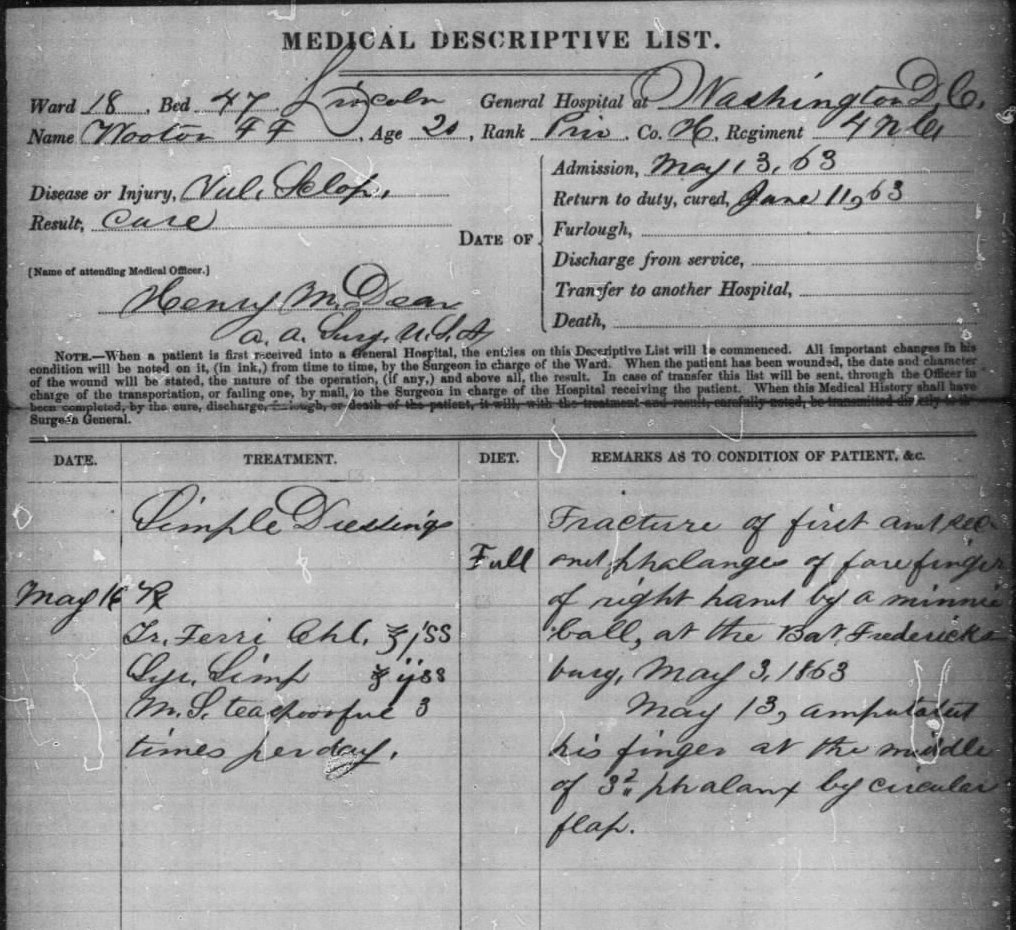 MEDICAL DESCRIPTIVE LIST.
Ward 18, Bed 47 Lincoln General Hospital at Washington D.C.
Name Wooton F F, Age 20, Rank Priv. Co. H, Regiment 4 N C
Disease or Injury, Vul. Sclop.
Result, Cure
[Name of attending Medical Officer.]
Henry M. Dean
A. A. Surg. U.S.A
DATE OF
Admission, May 13, 63
Return to duty, cured, June 11, 63
Furlough,
Discharge from service,
Transfer to another Hospital,
Death,
NOTE.—When a patient is first received into a General Hospital, the entries on this Descriptive List will be commenced. All important changes in his
condition will be noted on it, (in ink,) from time to time, by the Surgeon in charge of the Ward. When the patient has been wounded, the date and character
of the wound will be stated, the nature of the operation, (if any,) and above all, the result. In case of transfer this list will be sent, through the Officer in
charge of the transportation, or failing one, by mail, to the Surgeon in charge of the Hospital receiving the patient. When this Medical History shall have
been completed, by the cure, discharge, furlough, or death of the patient, it will, with the treatment and result, carefully noted, be transmitted directly to the
Surgeon General.
DATE. TREATMENT. DIET. REMARKS AS TO CONDITION OF PATIENT, &c.
Simple Dressings
Full
May 16 ℞
Tr. Ferri Chl. ℥jss
Syr. Simp ℥ijss
M. S. teaspoonful 3
times per day.
Fracture of first and sec-
ond phalanges of forefinger
of right hand by a minnie
ball, at the Bat Fredericks
burg, May 3, 1863
May 13, amputated
his finger at the middle
of 3d phalanx by circular
flap.